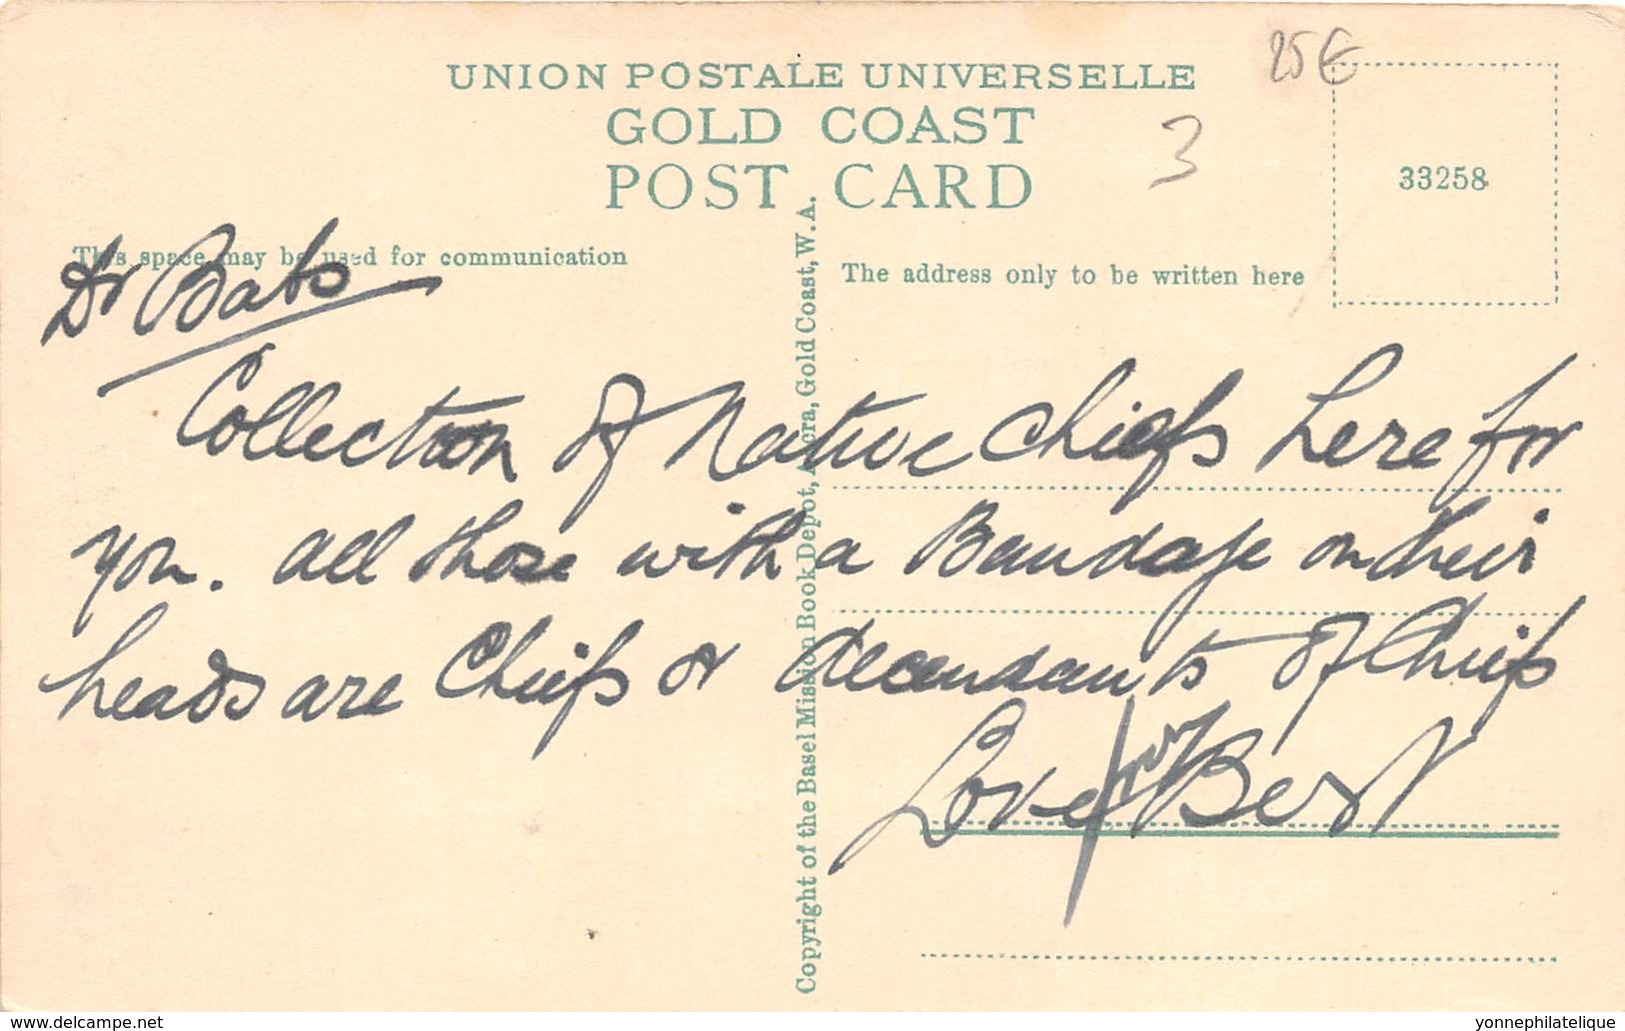 25€
UNION POSTALE UNIVERSELLE
GOLD COAST
3
POST CARD
33258
This space may be used for communication
The address only to be written here
Dr Babs
Collection of Native Chiefs here for
you. All those with a Bandage on their
heads are Chiefs or decendants of Chiefs
Love Best
Copyright of the Basel Mission Book Depot, Accra, Gold Coast, W. A.
www.delcampe.net
yonnephilatelique